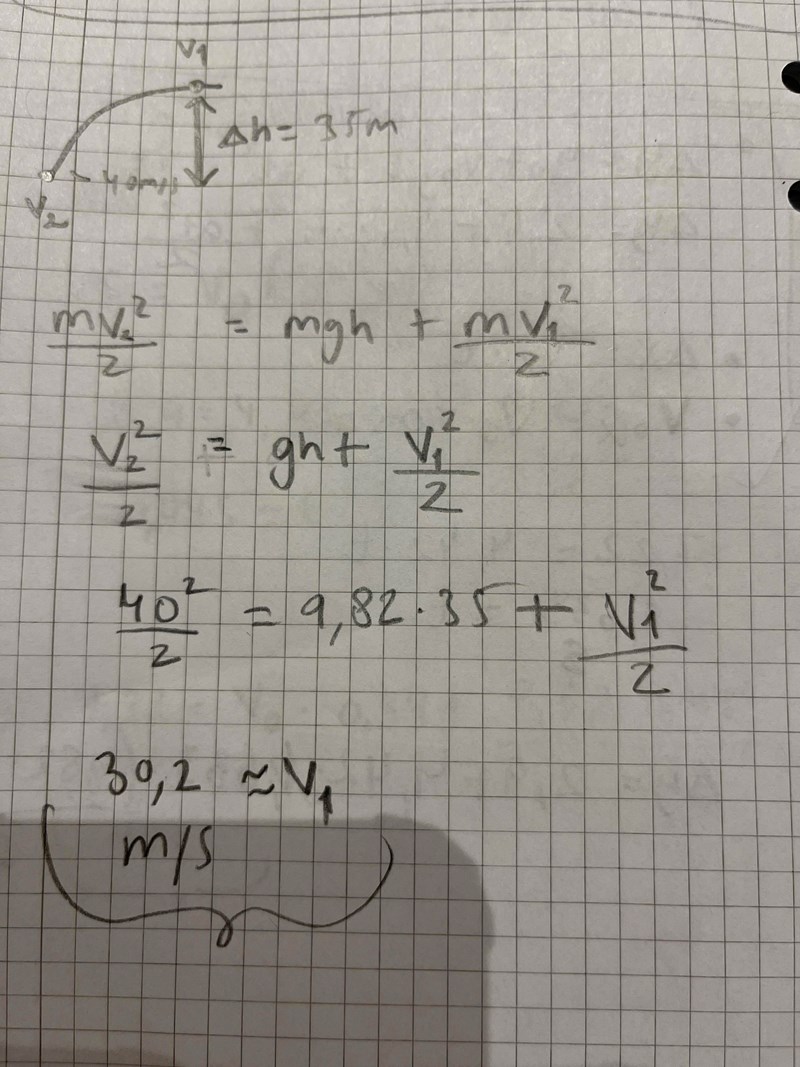 v₁
Δh = 35m
40m/s
v₂
mv₂²/2 = mgh + mv₁²/2
v₂²/2 = gh + v₁²/2
40²/2 = 9,82 · 35 + v₁²/2
30,2 ≈ v₁
m/s